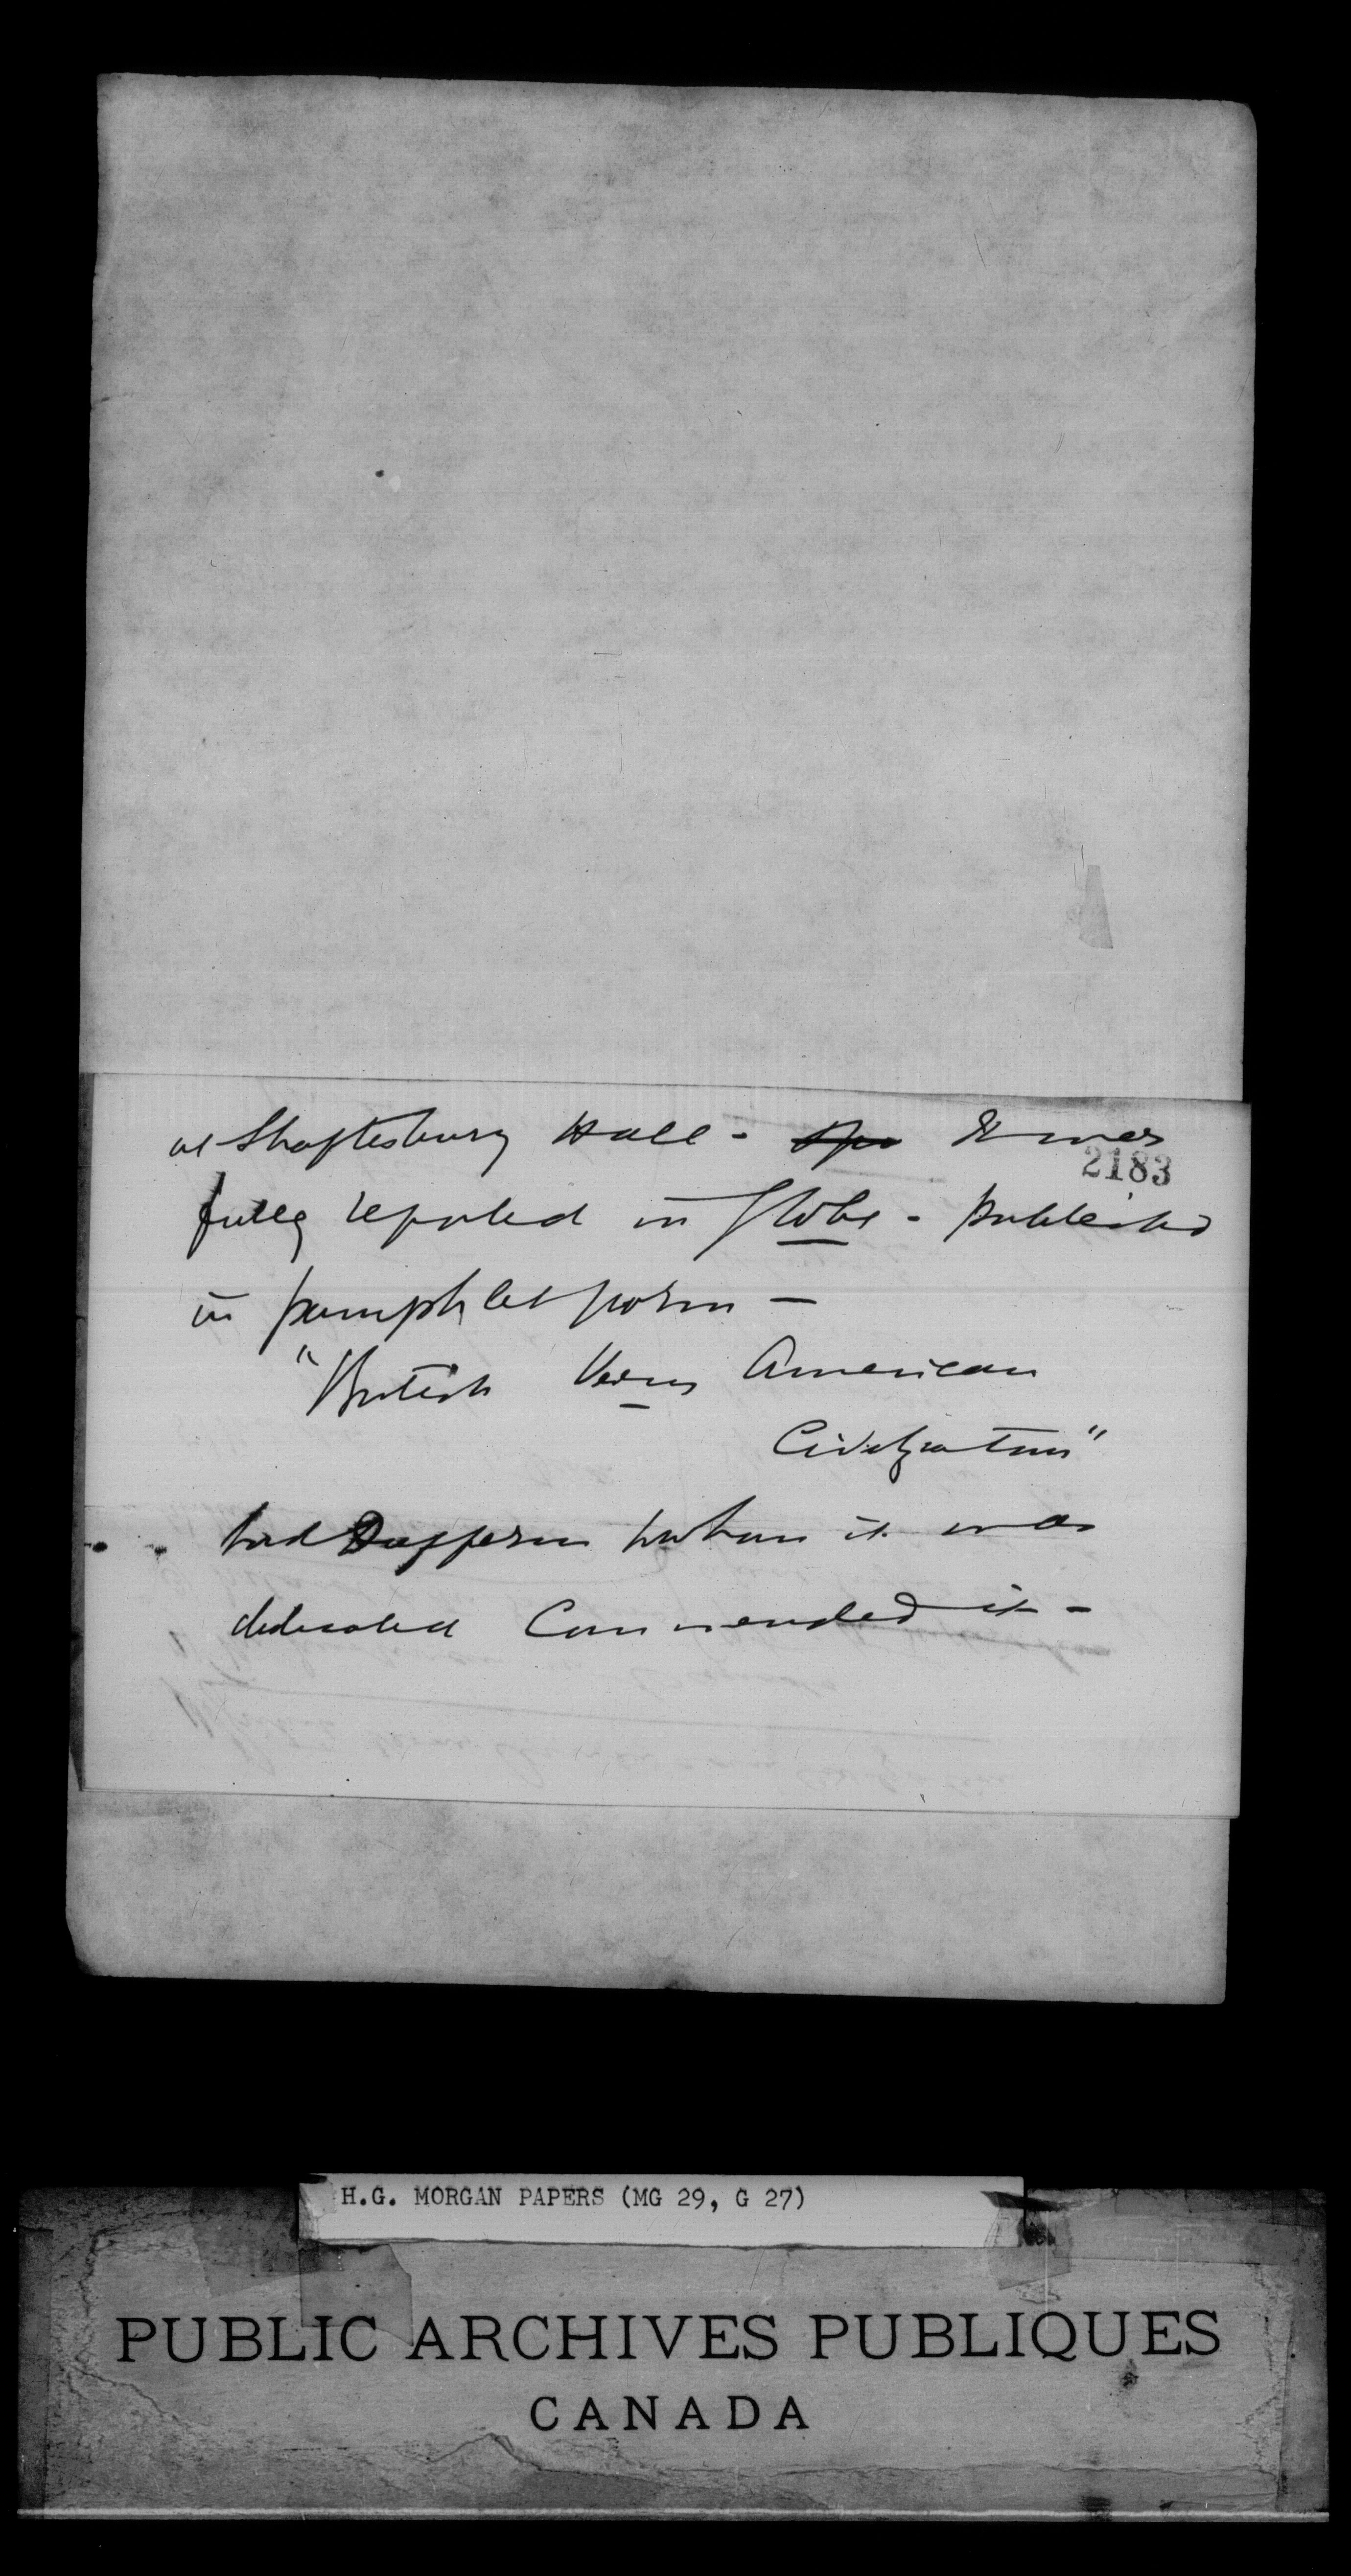 at Shaftesbury Hall - It was
2183
fully reported in Globe - published
in pamphlet form -
"British Versus American
Civilization"
Lord Dufferin to whom it was
dedicated Commended it -
H.G. MORGAN PAPERS (MG 29, G 27)
PUBLIC ARCHIVES PUBLIQUES
CANADA